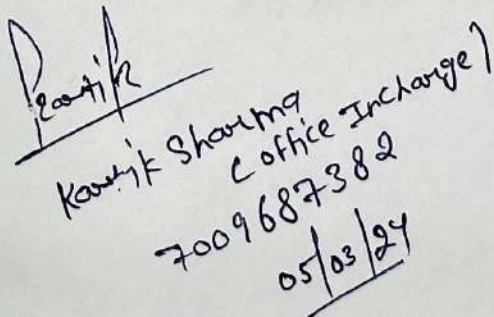 Kartik
Kartik Sharma
(office Incharge)
7009687382
05/03/24